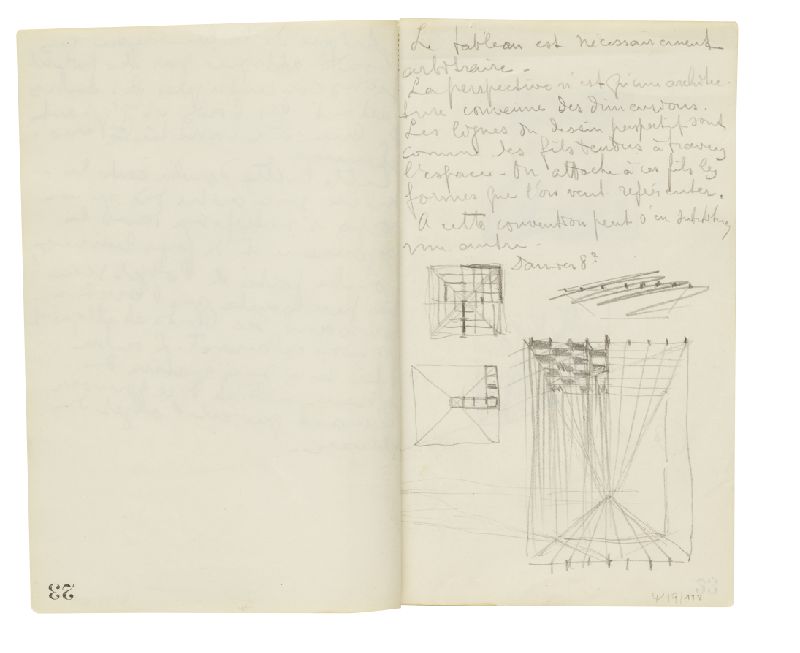 Le tableau est nécessairement
arbitraire.
La perspective n'est qu'une architec-
ture convenue des dimensions.
Les lignes du dessin perspectif sont
comme des fils tendus à travers
l'espace. On attache à ces fils les
formes que l'on veut représenter.
A cette convention peut s'en substituer
une autre.
23